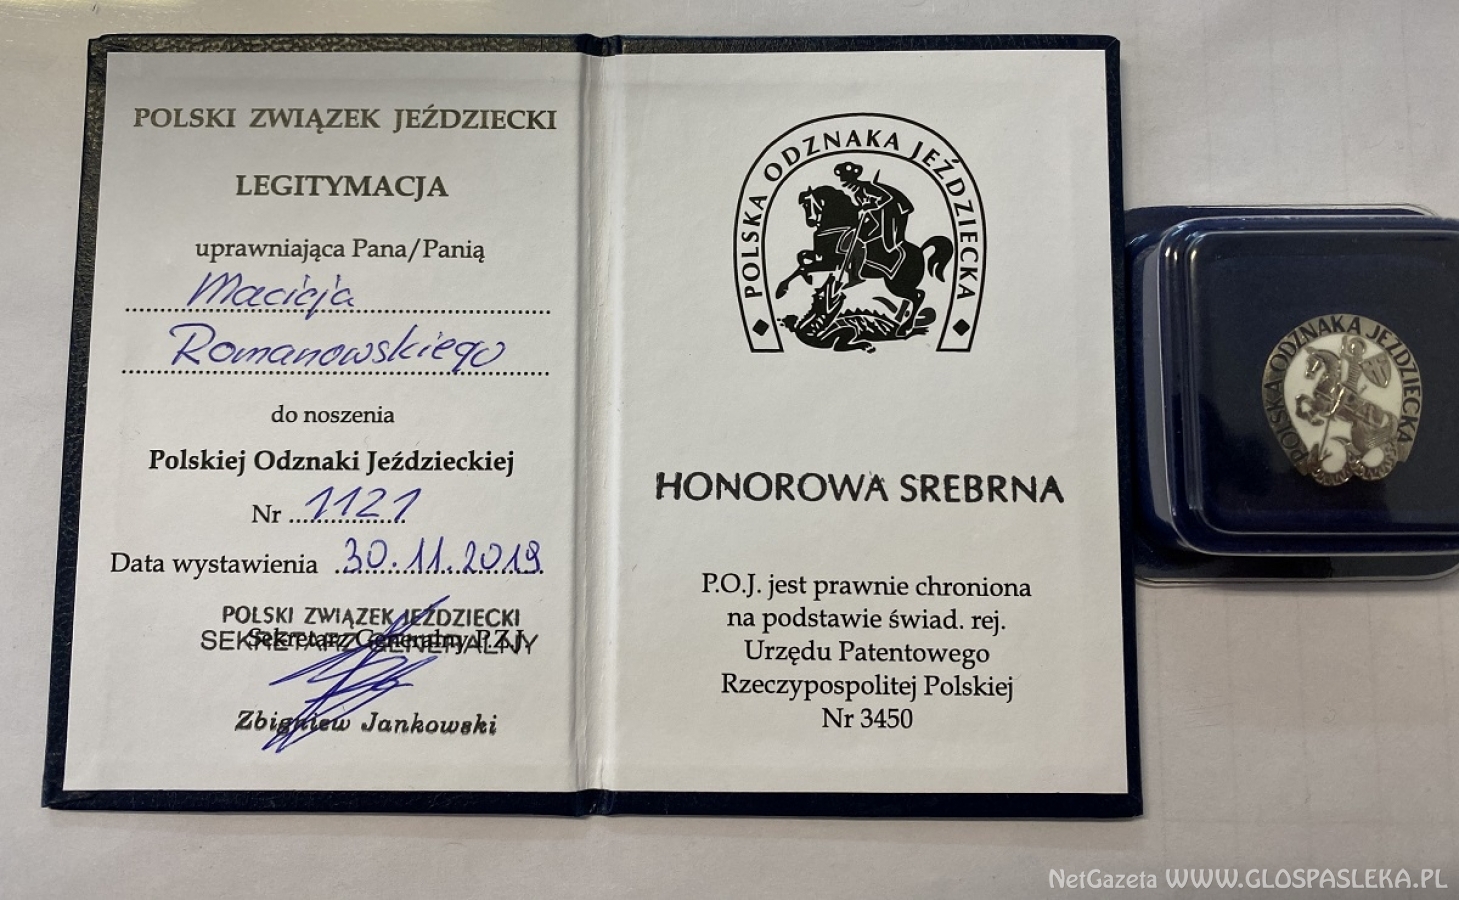 POLSKI ZWIĄZEK JEŹDZIECKI
LEGITYMACJA
uprawniająca Pana/Panią
Macieja
Romanowskiego
do noszenia
Polskiej Odznaki Jeździeckiej
Nr 1121
Data wystawienia 30.11.2019
POLSKI ZWIĄZEK JEŹDZIECKI
Sekretarz Generalny P.Z.J.
SEKRETARZ GENERALNY
Zbigniew Jankowski
POLSKA ODZNAKA JEŹDZIECKA
HONOROWA SREBRNA
P.O.J. jest prawnie chroniona
na podstawie świad. rej.
Urzędu Patentowego
Rzeczypospolitej Polskiej
Nr 3450
POLSKA ODZNAKA JEŹDZIECKA
NetGazeta WWW.GLOSPASLEKA.PL